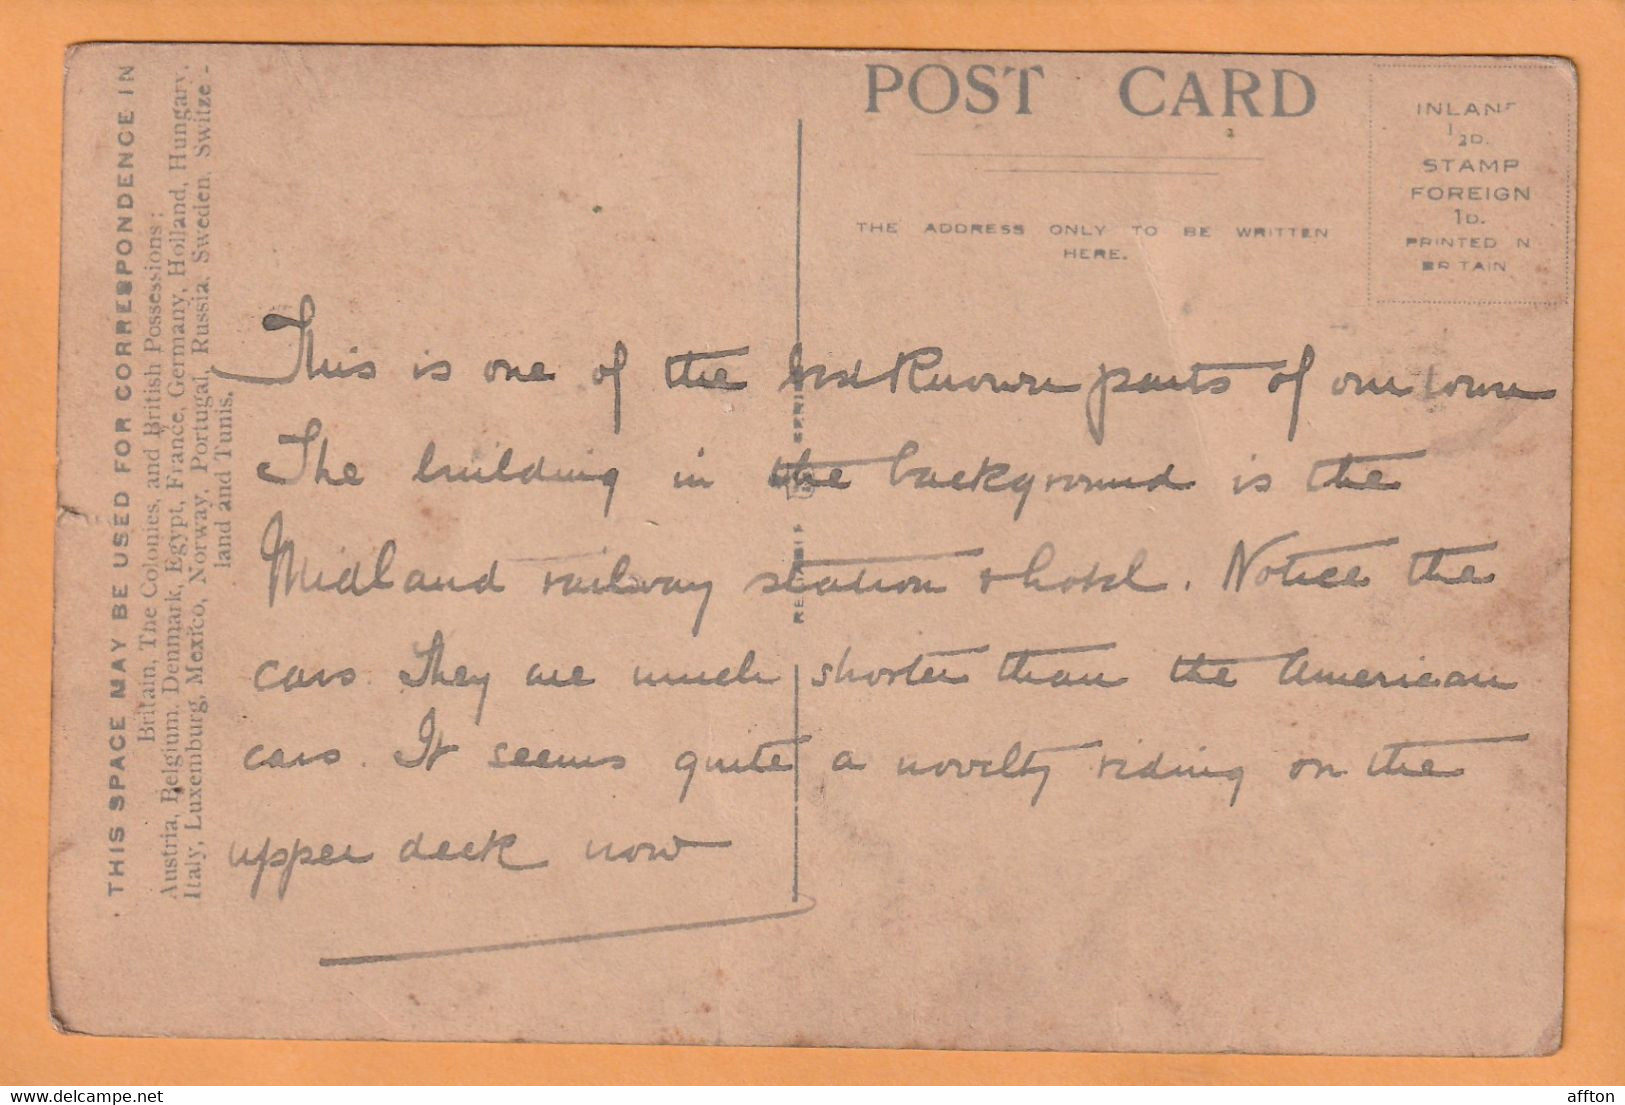 THIS SPACE MAY BE USED FOR CORRESPONDENCE IN
Britain, The Colonies, and British Possessions:
Austria, Belgium, Denmark, Egypt, France, Germany, Holland, Hungary,
Italy, Luxemburg, Mexico, Norway, Portugal, Russia, Sweden, Switze-
land and Tunis.
POST CARD
THE ADDRESS ONLY TO BE WRITTEN
HERE.
INLAND
½D.
STAMP
FOREIGN
1D.
PRINTED IN
BRITAIN
This is one of the best known parts of our town
The building in the background is the
Midland railway station & hotel. Notice the
cars. They are much shorter than the American
cars. It seems quite a novelty riding on the
upper deck now
SERIES
delcampe.net
affton